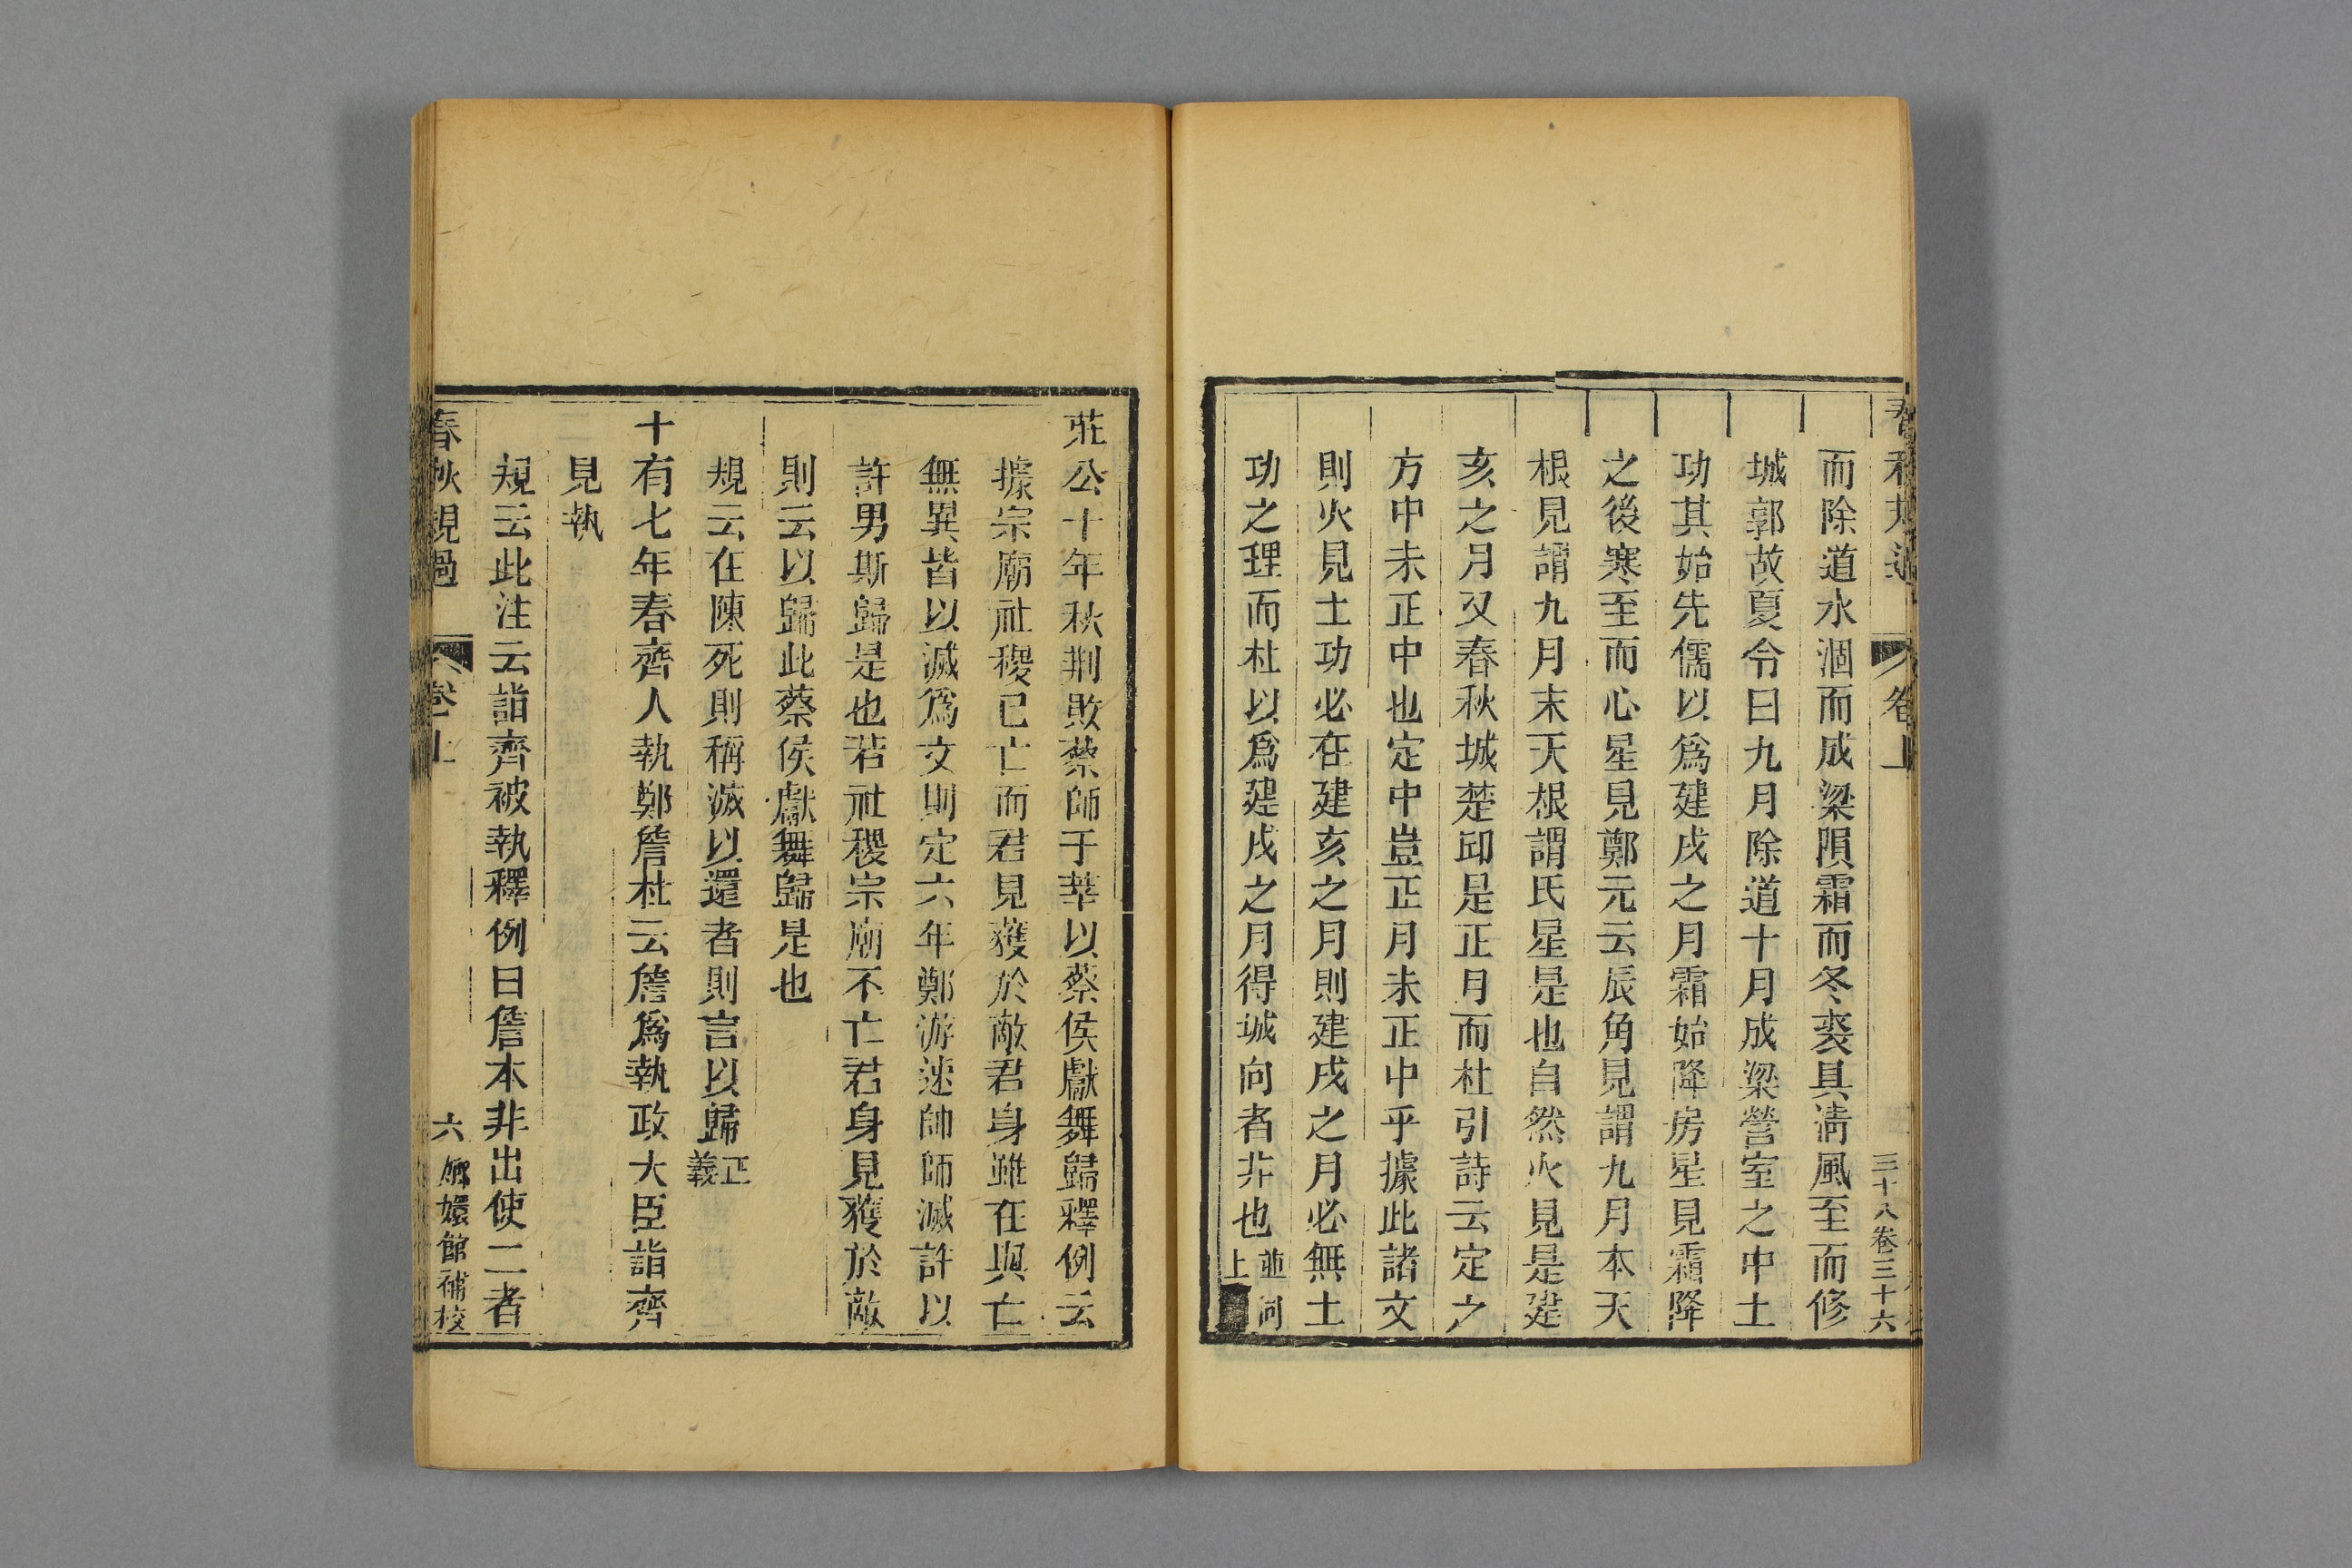 卷上
三十八卷三十六
而除道水涸而成梁隕霜而冬裘具凊風至而修
城郭故夏令曰九月除道十月成梁營室之中土
功其始先儒以爲建戌之月霜始降房星見霜降
之後寒至而心星見鄭元云辰角見謂九月本天
根見謂九月末天根謂氐星是也自然火見是建
亥之月又春秋城楚邱是正月而杜引詩云定之
方中未正中也定中豈正月未正中乎據此諸文
則火見土功必在建亥之月則建戌之月必無土
功之理而杜以爲建戌之月得城向者非也並同上
莊公十年秋荆敗蔡師于莘以蔡侯獻舞歸釋例云
據宗廟社稷已亡而君見獲於敵君身雖在與亡
無異皆以滅爲文則定六年鄭游速帥師滅許以
許男斯歸是也若社稷宗廟不亡君身見獲於敵
則云以歸此蔡侯獻舞歸是也
規云在陳死則稱滅以還者則言以歸正義
十有七年春齊人執鄭詹杜云詹爲執政大臣詣齊
見執
規云此注云詣齊被執釋例曰詹本非出使二者
春秋規過
卷上
六 嫏嬛館補校